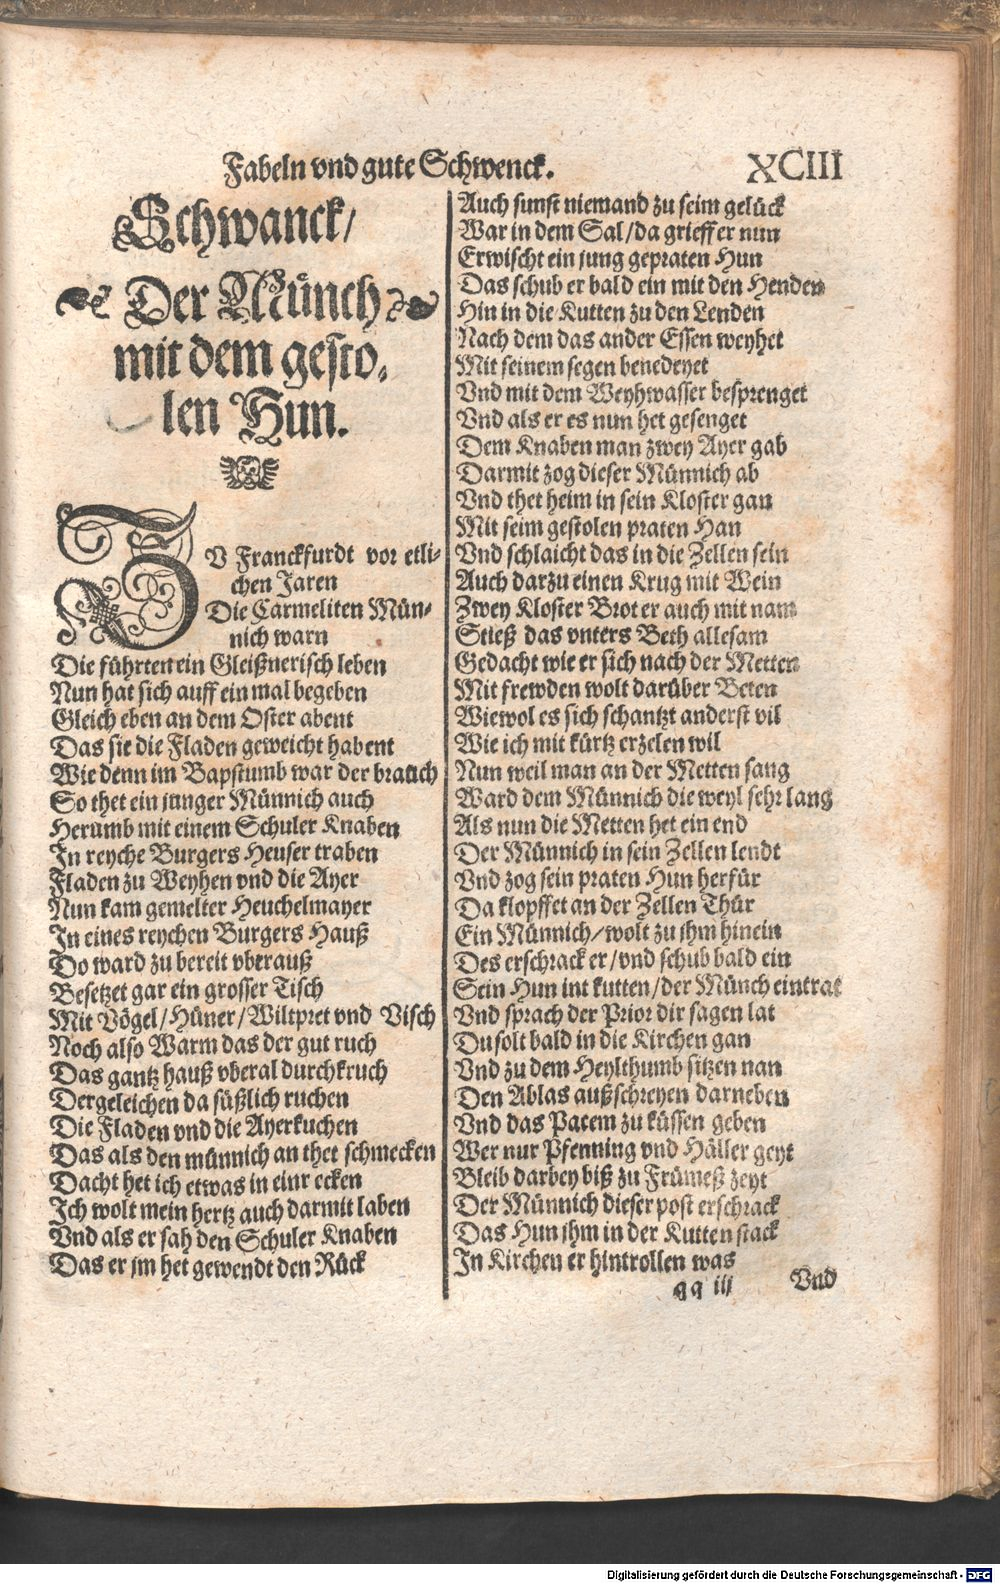 Fabeln vnd gute Schwenck. XCIII
Schwanck/
Der Münch
mit dem gesto-
len Hun.
ZV Franckfurdt vor etli-
chen Jaren
Die Carmeliten Mün-
nich warn
Die führten ein Gleißnerisch leben
Nun hat sich auff ein mal begeben
Gleich eben an dem Oster abent
Das sie die Fladen geweicht habent
Wie denn im Bapstumb war der brauch
So thet ein junger Münnich auch
Herumb mit einem Schuler Knaben
In reyche Burgers Heuser traben
Fladen zu Weyhen vnd die Ayer
Nun kam gemelter Heuchelmayer
In eines reychen Burgers Hauß
Do ward zu bereit vberauß
Besetzet gar ein grosser Tisch
Mit Vögel/Hüner/Wiltpret vnd Visch
Noch also Warm das der gut ruch
Das gantz hauß vberal durchkruch
Dergeleichen da süßlich ruchen
Die Fladen vnd die Ayerkuchen
Das als den münnich an thet schmecken
Dacht het ich etwas in einr ecken
Ich wolt mein hertz auch darmit laben
Vnd als er sah den Schuler Knaben
Das er jm het gewendt den Rück
Auch sunst niemand zu seim gelück
War in dem Sal/da grieff er nun
Erwischt ein jung gepraten Hun
Das schub er bald ein mit den Henden
Hin in die Kutten zu den Lenden
Nach dem das ander Essen weyhet
Mit seinem segen benedeyet
Vnd mit dem Weyhwasser besprenget
Vnd als er es nun het gesenget
Dem Knaben man zwey Ayer gab
Darmit zog dieser Münnich ab
Vnd thet heim in sein Kloster gan
Mit seim gestolen praten Han
Vnd schlaicht das in die Zellen sein
Auch darzu einen Krug mit Wein
Zwey Kloster Brot er auch mit nam
Stieß das vnters Beth allesam
Gedacht wie er sich nach der Metten
Mit frewden wolt darüber Beten
Wiewol es sich schantzt anderst vil
Wie ich mit kürtz erzelen wil
Nun weil man an der Metten sang
Ward dem Münnich die weyl sehr lang
Als nun die Metten het ein end
Der Münnich in sein Zellen lendt
Vnd zog sein praten Hun herfür
Da klopffet an der Zellen Thür
Ein Münnich/wolt zu jhm hinein
Des erschrack er/vnd schub bald ein
Sein Hun int kutten/der Münch eintrat
Vnd sprach der Prior dir sagen lat
Du solt bald in die Kirchen gan
Vnd zu dem Heylthumb sitzen nan
Den Ablas außschreyen darneben
Vnd das Pacem zu küssen geben
Wer nur Pfenning vnd Häller geyt
Bleib darbey biß zu Frümeß zeyt
Der Münnich dieser post erschrack
Das Hun jhm in der Kutten stack
In Kirchen er hintrollen was
qq iij Vnd
Digitalisierung gefördert durch die Deutsche Forschungsgemeinschaft - DFG